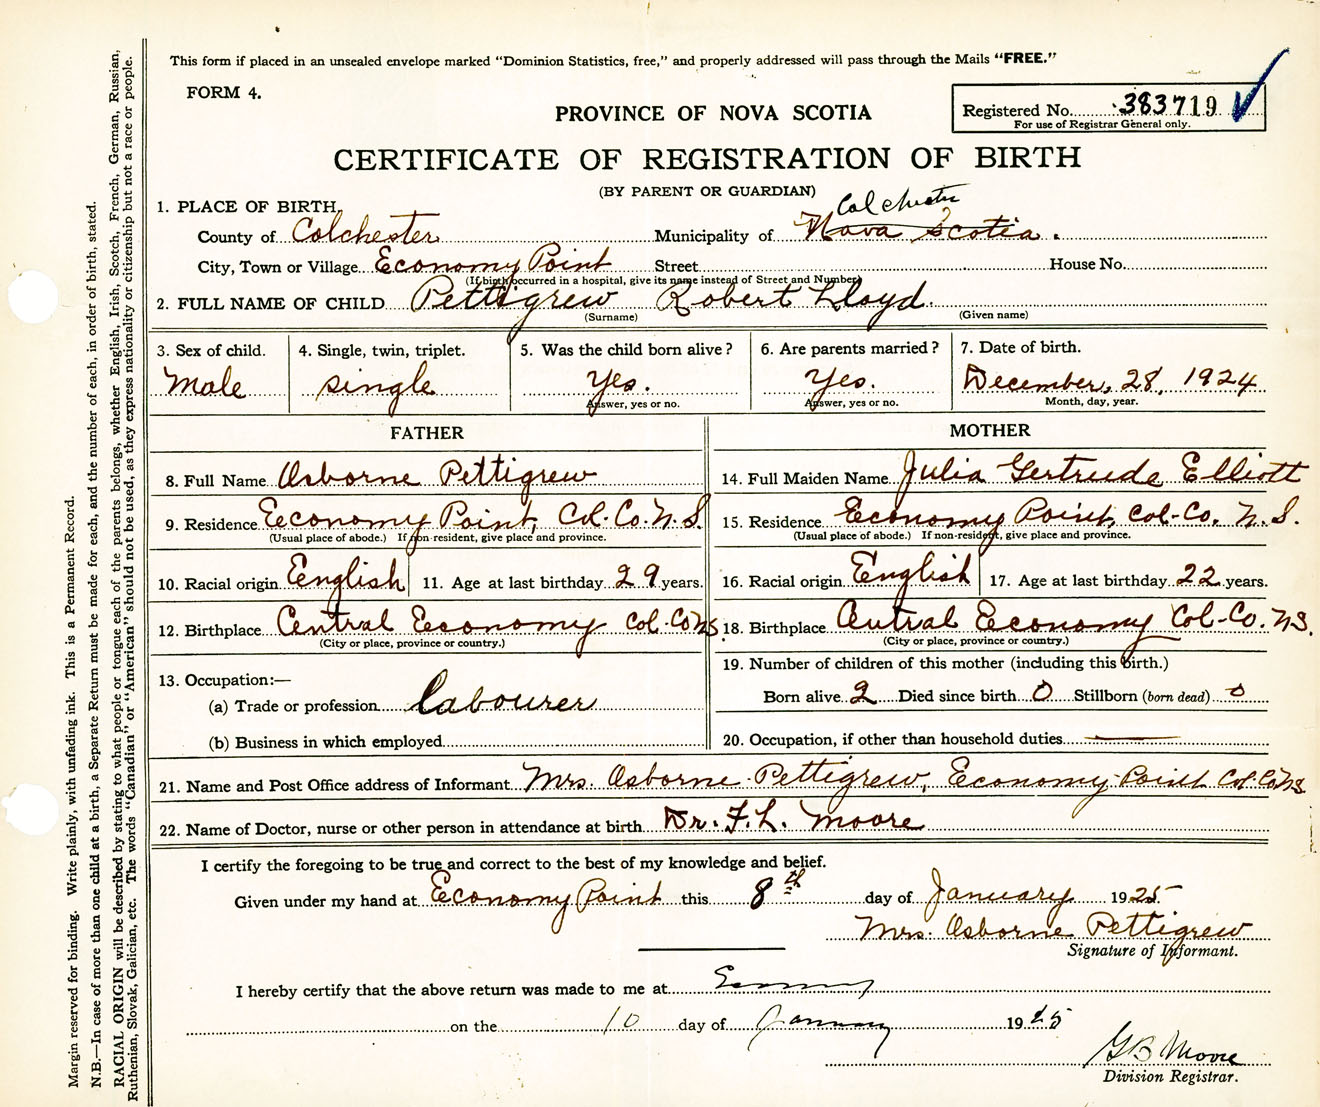 This form if placed in an unsealed envelope marked “Dominion Statistics, free,” and properly addressed will pass through the Mails “FREE.”
FORM 4.
PROVINCE OF NOVA SCOTIA
Registered No. 383719
For use of Registrar General only.
CERTIFICATE OF REGISTRATION OF BIRTH
(BY PARENT OR GUARDIAN)
1. PLACE OF BIRTH
Colchester
County of Colchester Municipality of Nova Scotia.
City, Town or Village Economy Point Street House No.
(If birth occurred in a hospital, give its name instead of Street and Number)
2. FULL NAME OF CHILD Pettigrew Robert Lloyd.
(Surname) (Given name)
3. Sex of child. 4. Single, twin, triplet. 5. Was the child born alive? 6. Are parents married? 7. Date of birth.
Male single Yes. Yes. December, 28, 1924
Answer, yes or no. Answer, yes or no. Month, day, year.
FATHER MOTHER
8. Full Name Osborne Pettigrew 14. Full Maiden Name Julia Gertrude Elliott
9. Residence Economy Point, Col. Co. N. S. 15. Residence Economy Point, Col-Co. N. S.
(Usual place of abode.) If non-resident, give place and province. (Usual place of abode.) If non-resident, give place and province.
10. Racial origin English 11. Age at last birthday 29 years. 16. Racial origin English 17. Age at last birthday 22 years.
12. Birthplace Central Economy Col-Co NS. 18. Birthplace Central Economy Col-Co. NS.
(City or place, province or country.) (City or place, province or country.)
19. Number of children of this mother (including this birth.)
13. Occupation:—
(a) Trade or profession Labourer Born alive 2 Died since birth 0 Stillborn (born dead) 0
(b) Business in which employed 20. Occupation, if other than household duties —
21. Name and Post Office address of Informant Mrs. Osborne Pettigrew, Economy Point Col. Co NS
22. Name of Doctor, nurse or other person in attendance at birth Dr. F. L. Moore
I certify the foregoing to be true and correct to the best of my knowledge and belief.
Given under my hand at Economy Point this 8th day of January 1925
Mrs. Osborne Pettigrew
Signature of Informant.
I hereby certify that the above return was made to me at Economy
on the 10 day of January 1925
G B Moore
Division Registrar.
Margin reserved for binding. Write plainly, with unfading ink. This is a Permanent Record.
N.B.—In case of more than one child at a birth, a Separate Return must be made for each, and the number of each, in order of birth, stated.
RACIAL ORIGIN will be described by stating to what people or tongue each of the parents belongs, whether English, Irish, Scotch, French, German, Russian,
Ruthenian, Slovak, Galician, etc. The words “Canadian” or “American” should not be used, as they express nationality or citizenship but not a race or people.